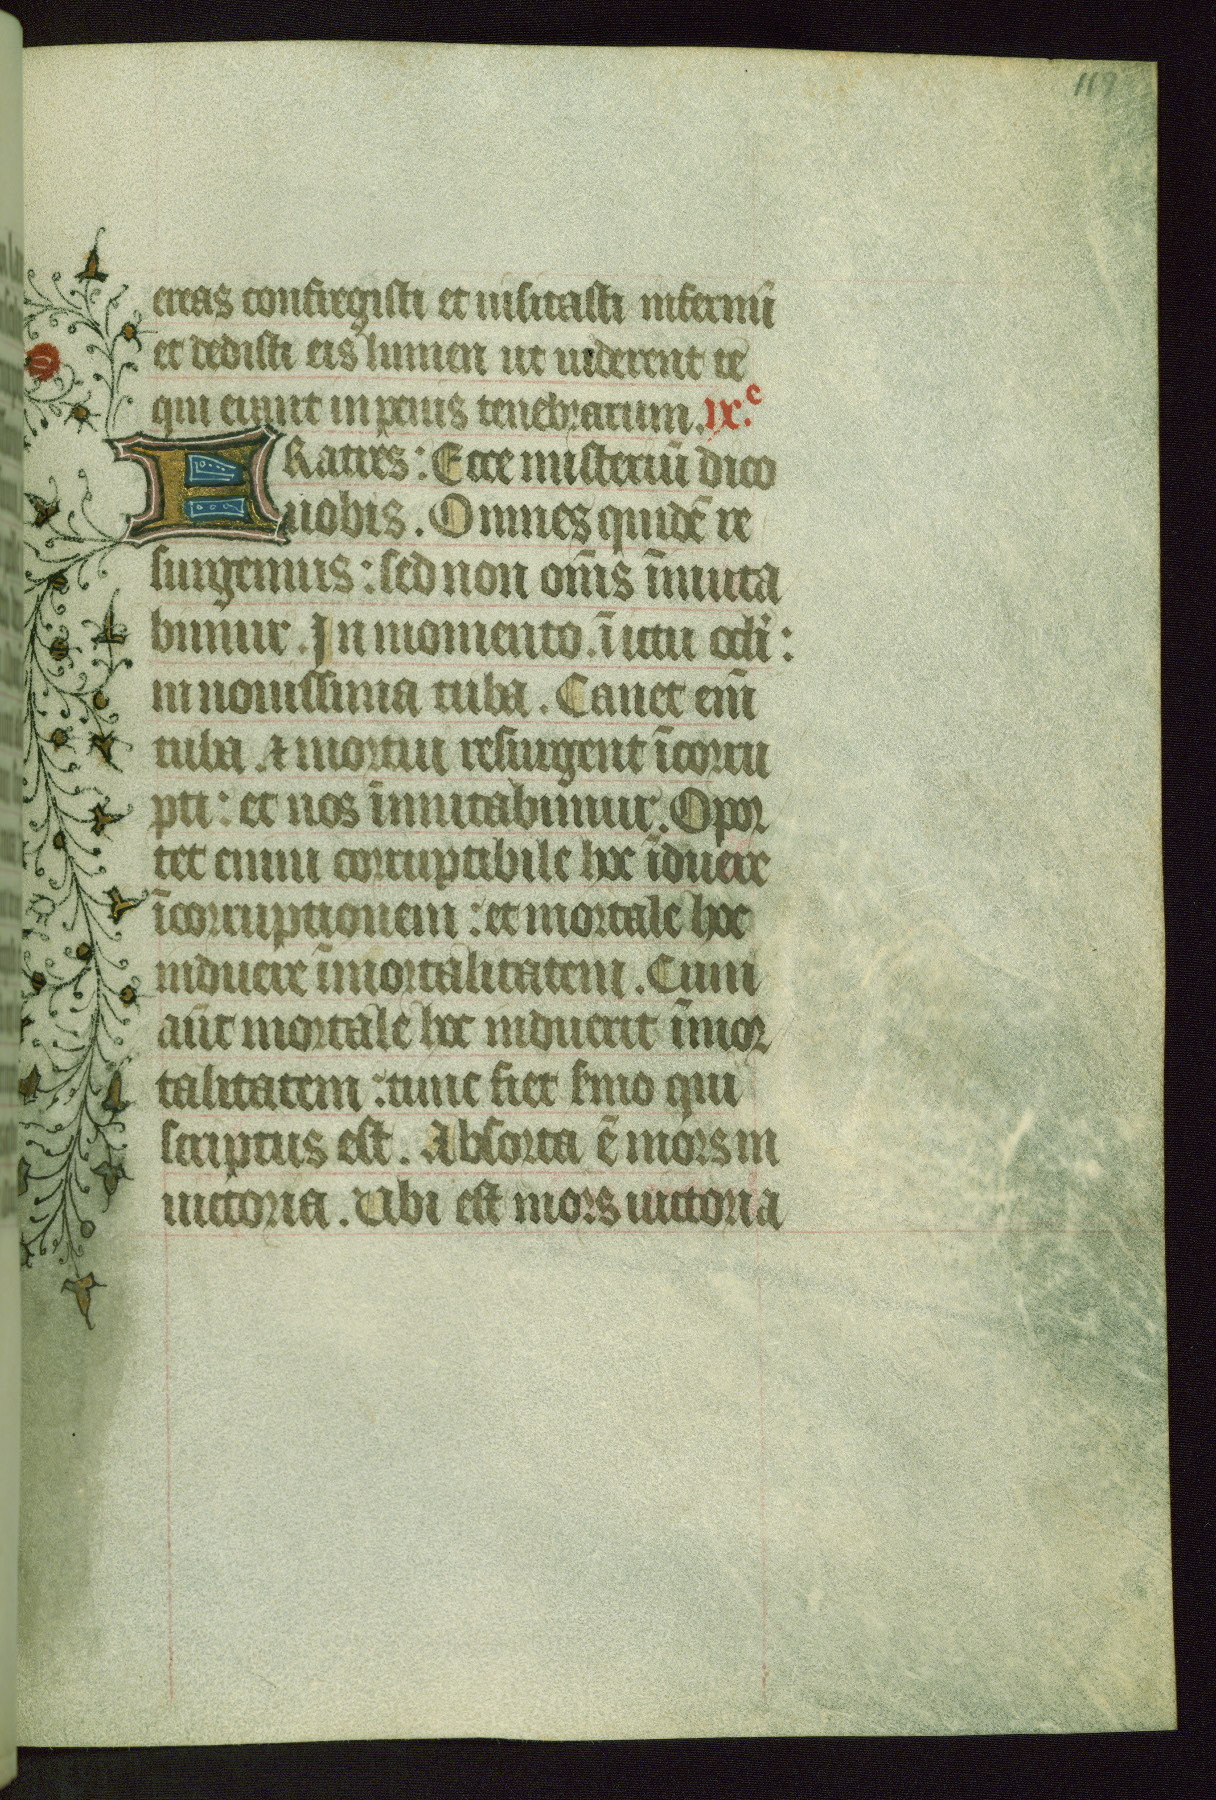 119
ereas confregisti et uisitasti infernū
et dedisti eis lumen ut uiderent te
qui erant in penis tenebrarum. ix.c
FRatres: Ecce misteriū dico
uobis. Omnes quidē re
surgemus: sed non om̄s īmuta
bimur. In momento. ī ictu ocĺi:
in nouissima tuba. Canet em̄
tuba. & mortui resurgent īcorru
pti: et nos īmutabimur. Opor
tet enim corruptibile hoc īduere
īcorruptionem: et mortale hoc
induere īmortalitatem. Cum
aūt mortale hoc induerit īmor
talitatem: tunc fiet ẜmo qui
scriptus est. Absorta ē mors in
uictoria. Ubi est mors uictoria